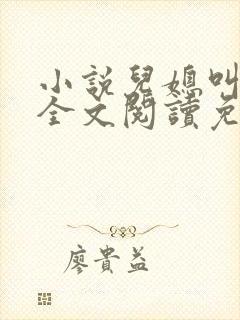 小說兒媳叫
全文閱讀免
廖貴益